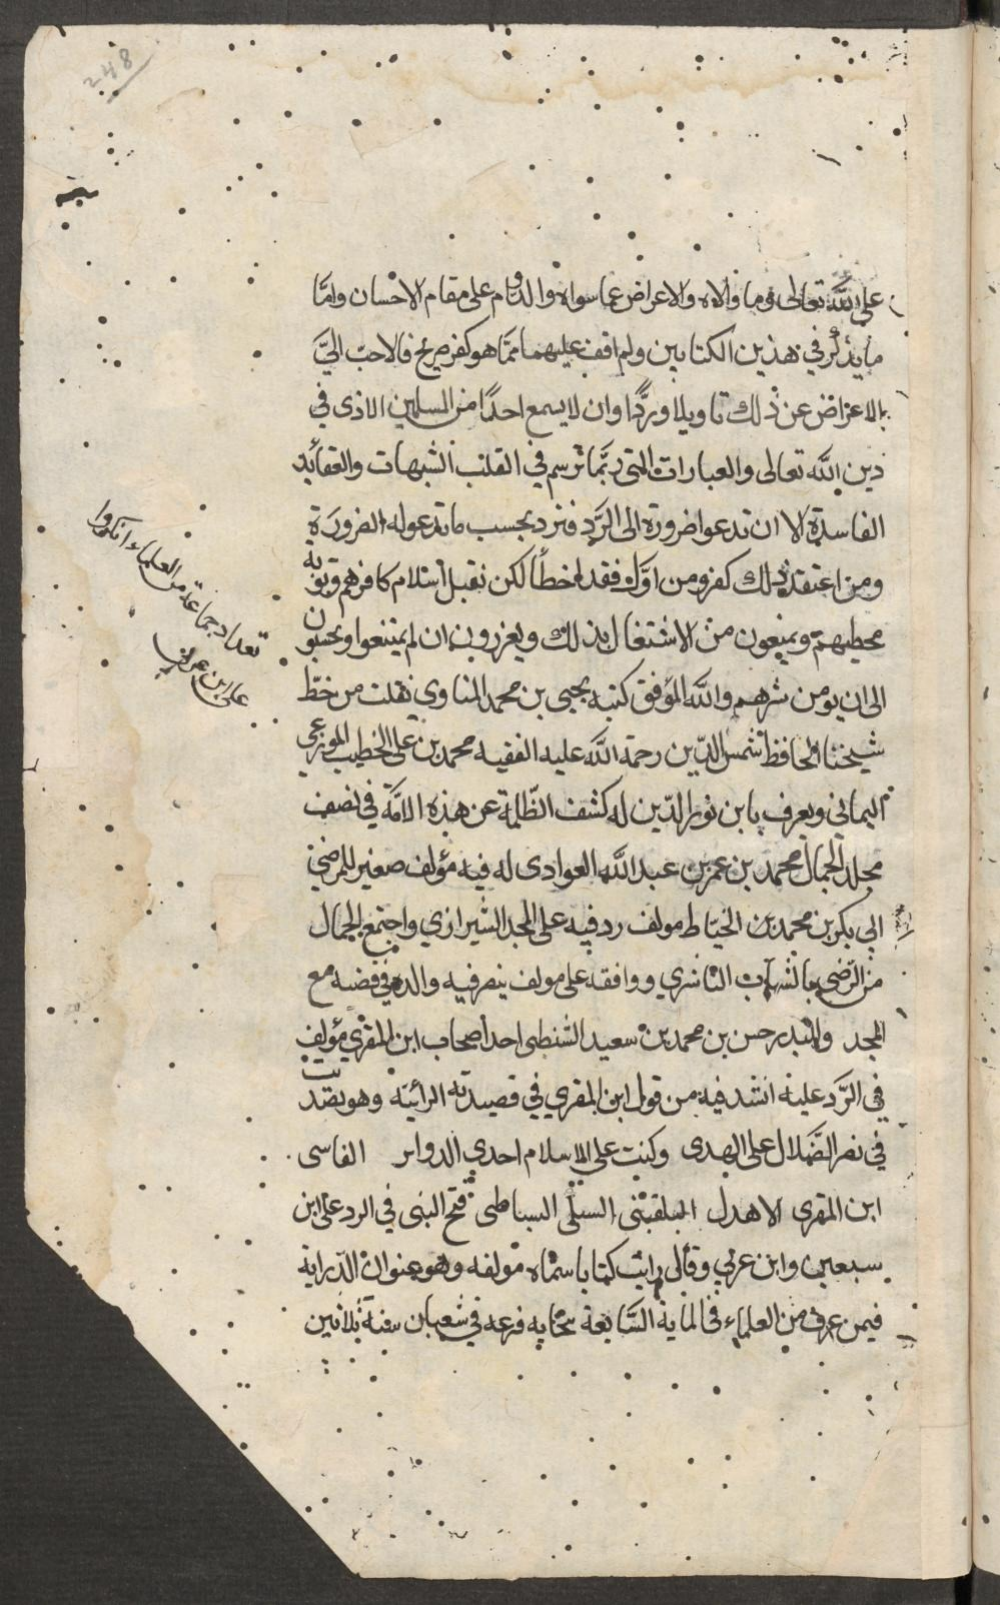 248
على الله تعالى وما والاه والاعراض عما سواه والدوام على مقام الاحسان وامّا
ما يذكر في هذين الكتابين ولم اقف عليهما ممّا هو كفر صريح فالاحبّ اليّ
بالاعراض عن ذلك تاويلا وردًّا وان لا يسمع احدًا من المسلمين الاذى في
دين الله تعالى والعبارات التى ربّما ترسم في القلب الشبهات والعقائد
الفاسدة الا ان تدعوا ضرورة الى الرّد فنرد بحسب ما تدعو له الضرورة
ومن اعتقد ذلك كفر ومن اوّله فقد اخطأ لكن نقبل اسلام كافرهم وتوبة
مخطيهم ويمنعون من الاشتغال بذلك ويعزرون ان لم يمتنعوا ويحبسون
الى ان يومن شرهم والله الموفق كتبه يحيى بن محمد المناوي نقلت من خطّ
شيخنا الحافظ شمس الدّين رحمة الله عليه الفقيه محمد بن على الخطيب الموزعي
اليماني ويعرف بابن نور الدّين له كشف الظّلمة عن هذه الامّة في نصف
مجلد الجمال محمد بن عمر بن عبد الله العوادى له فيه مؤلف صغير للرضي
ابي بكر بن محمد بن الخيّاط مولف رد فيه على المجد الشيرازي واجتمع الجمال
من الرّضي بالشهاب الناشري ووافقه على مولف ينصر فيه والده في قضية مع
المجد والبدر حسن بن محمد بن سعيد الشنطى احد اصحاب ابن المقري مؤلف
في الرّد عليه انشد فيه من قول ابن المقري في قصيدته الرائيّة وهو بيت
في نصر الضّلال على الهدى وكنت على الاسلام احدي الدواىر الفاسى
ابن المقرى الاهدل البلقينى السيلى البساطى فتح النبى في الرد على ابن
سبعين وابن عربي وقال رايت كتابا سمّاه مولفه وهو عنوان الدّراية
فيمن عرف من العلماء فى الماية السّابعة بجايه فرغه في شعبان سنة ثلاثين
تعداد جماعة من العلماء انكروا
على ابن عربي